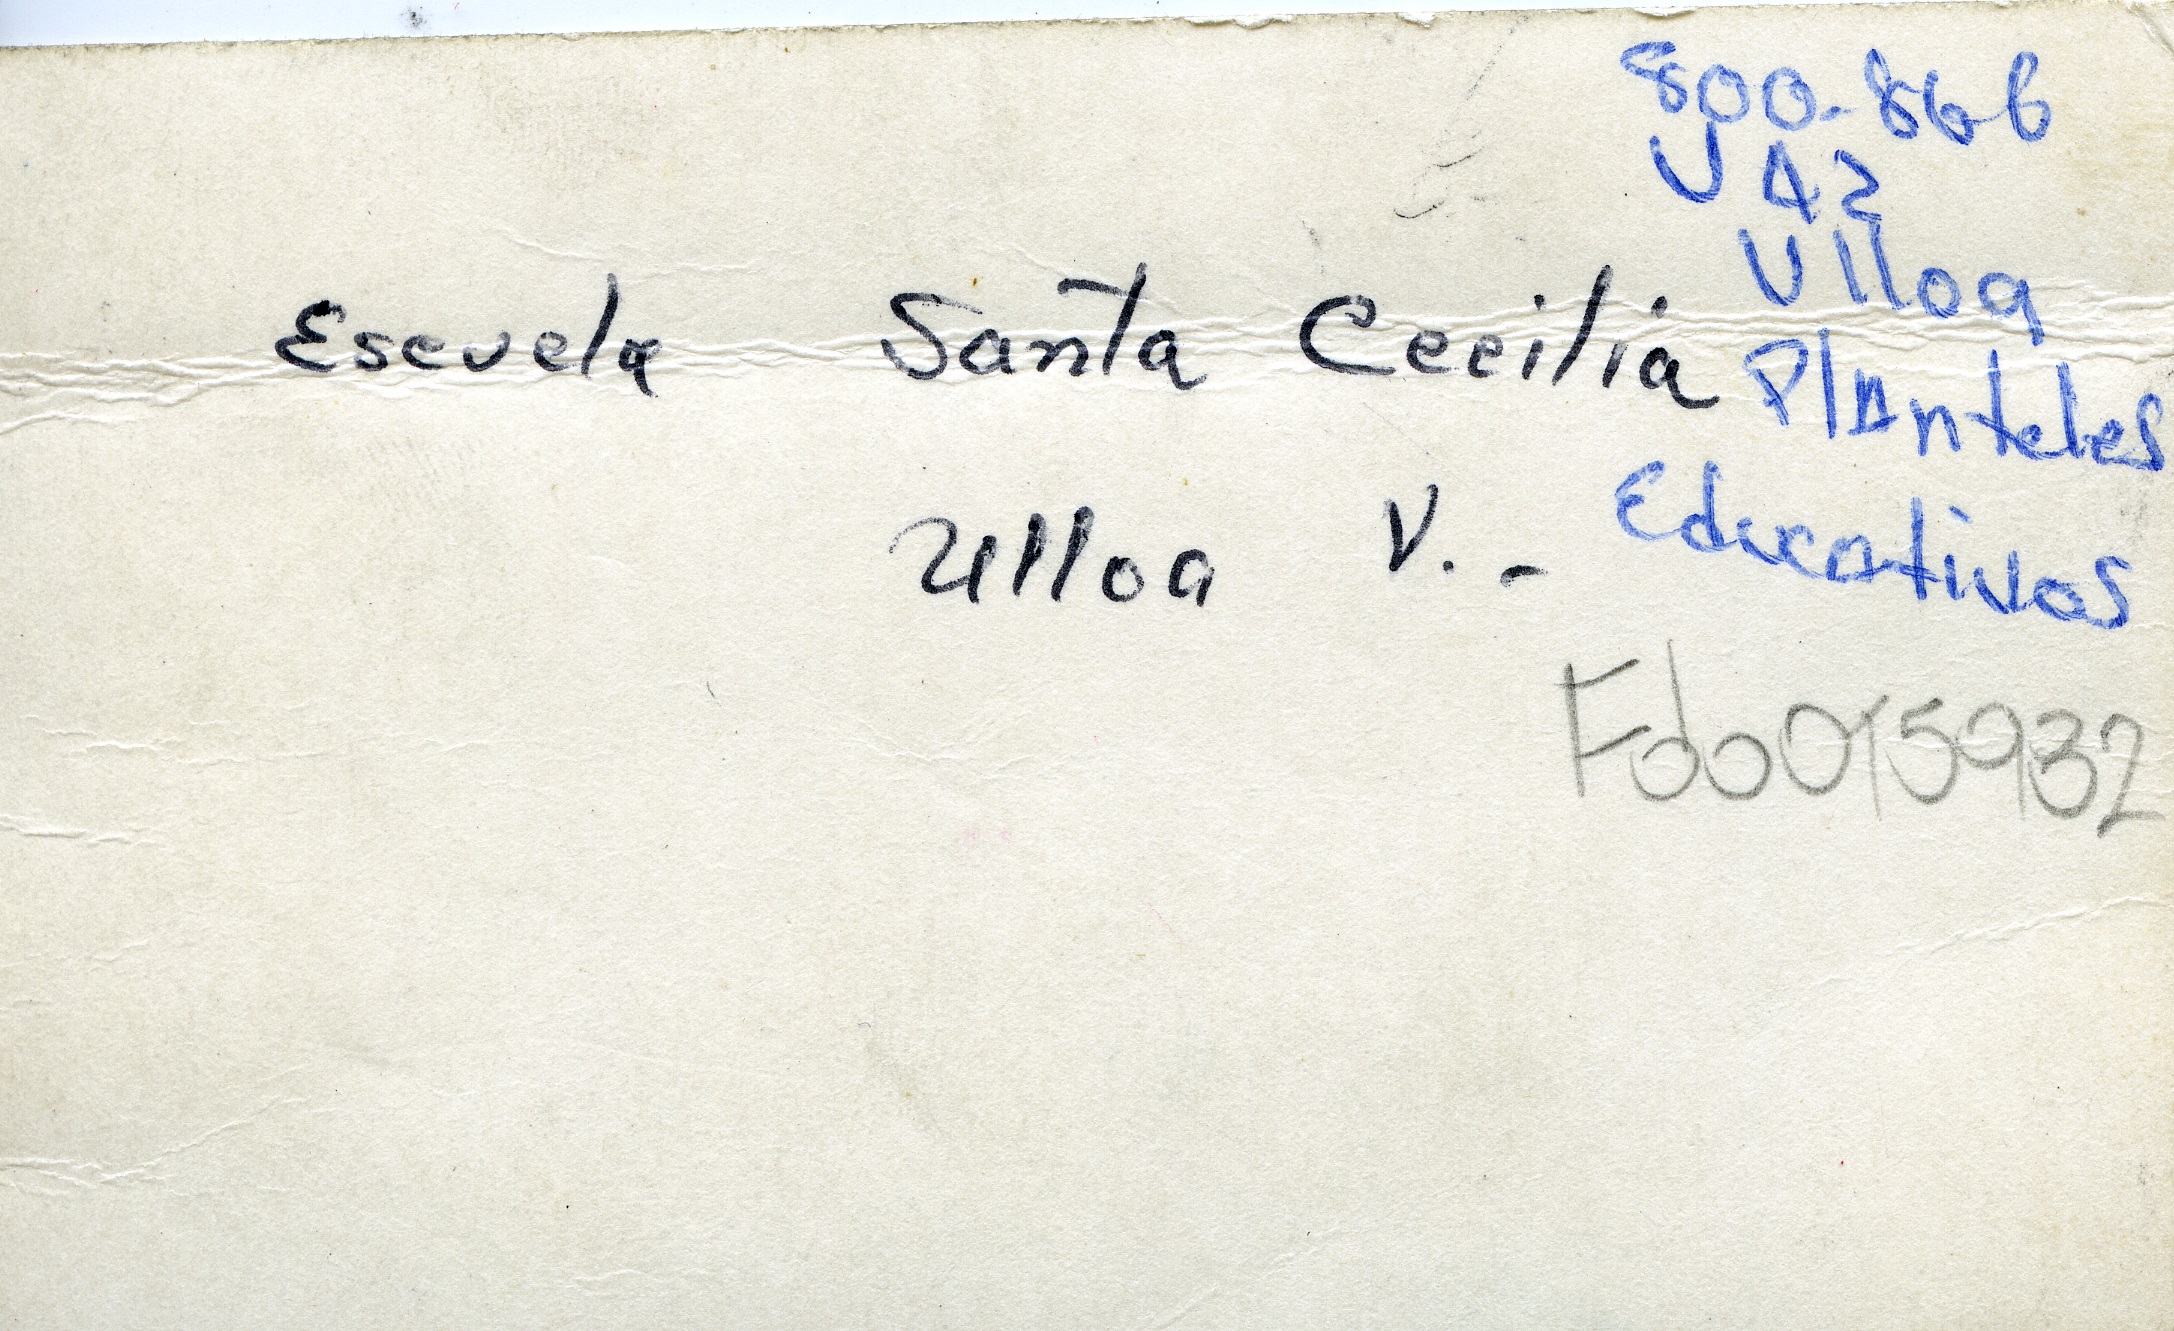 800-866
U A2
Ulloa
Planteles
Educativos
Escuela Santa Cecilia
Ulloa V.-
Fdo015932